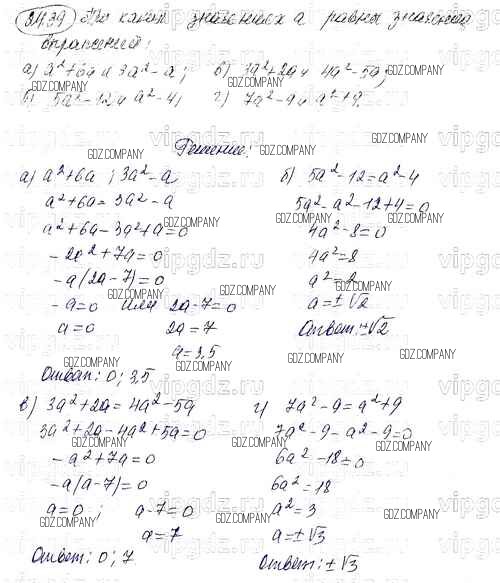 2439 При каких значениях a равны значения
выражений:
а) a²+6a и 3a²-a; б) 3a²+2a и 4a²-5a;
в) 5a²-12 и a²-4; г) 7a²-9 и a²+9.
Решение:
а) a²+6a; 3a²-a
a²+6a=3a²-a
a²+6a-3a²+a=0
-2a²+7a=0
-a(2a-7)=0
-a=0 или 2a-7=0
a=0 2a=7
a=3,5
Ответ: 0; 3,5
б) 5a²-12=a²-4
5a²-a²-12+4=0
4a²-8=0
4a²=8
a²=2
a=±√2
Ответ: ±√2
в) 3a²+2a=4a²-5a
3a²+2a-4a²+5a=0
-a²+7a=0
-a(a-7)=0
a=0; a-7=0
a=7
Ответ: 0; 7
г) 7a²-9=a²+9
7a²-9-a²-9=0
6a²-18=0
6a²=18
a²=3
a=±√3
Ответ: ±√3
GDZ.COMPANY
vipgdz.ru